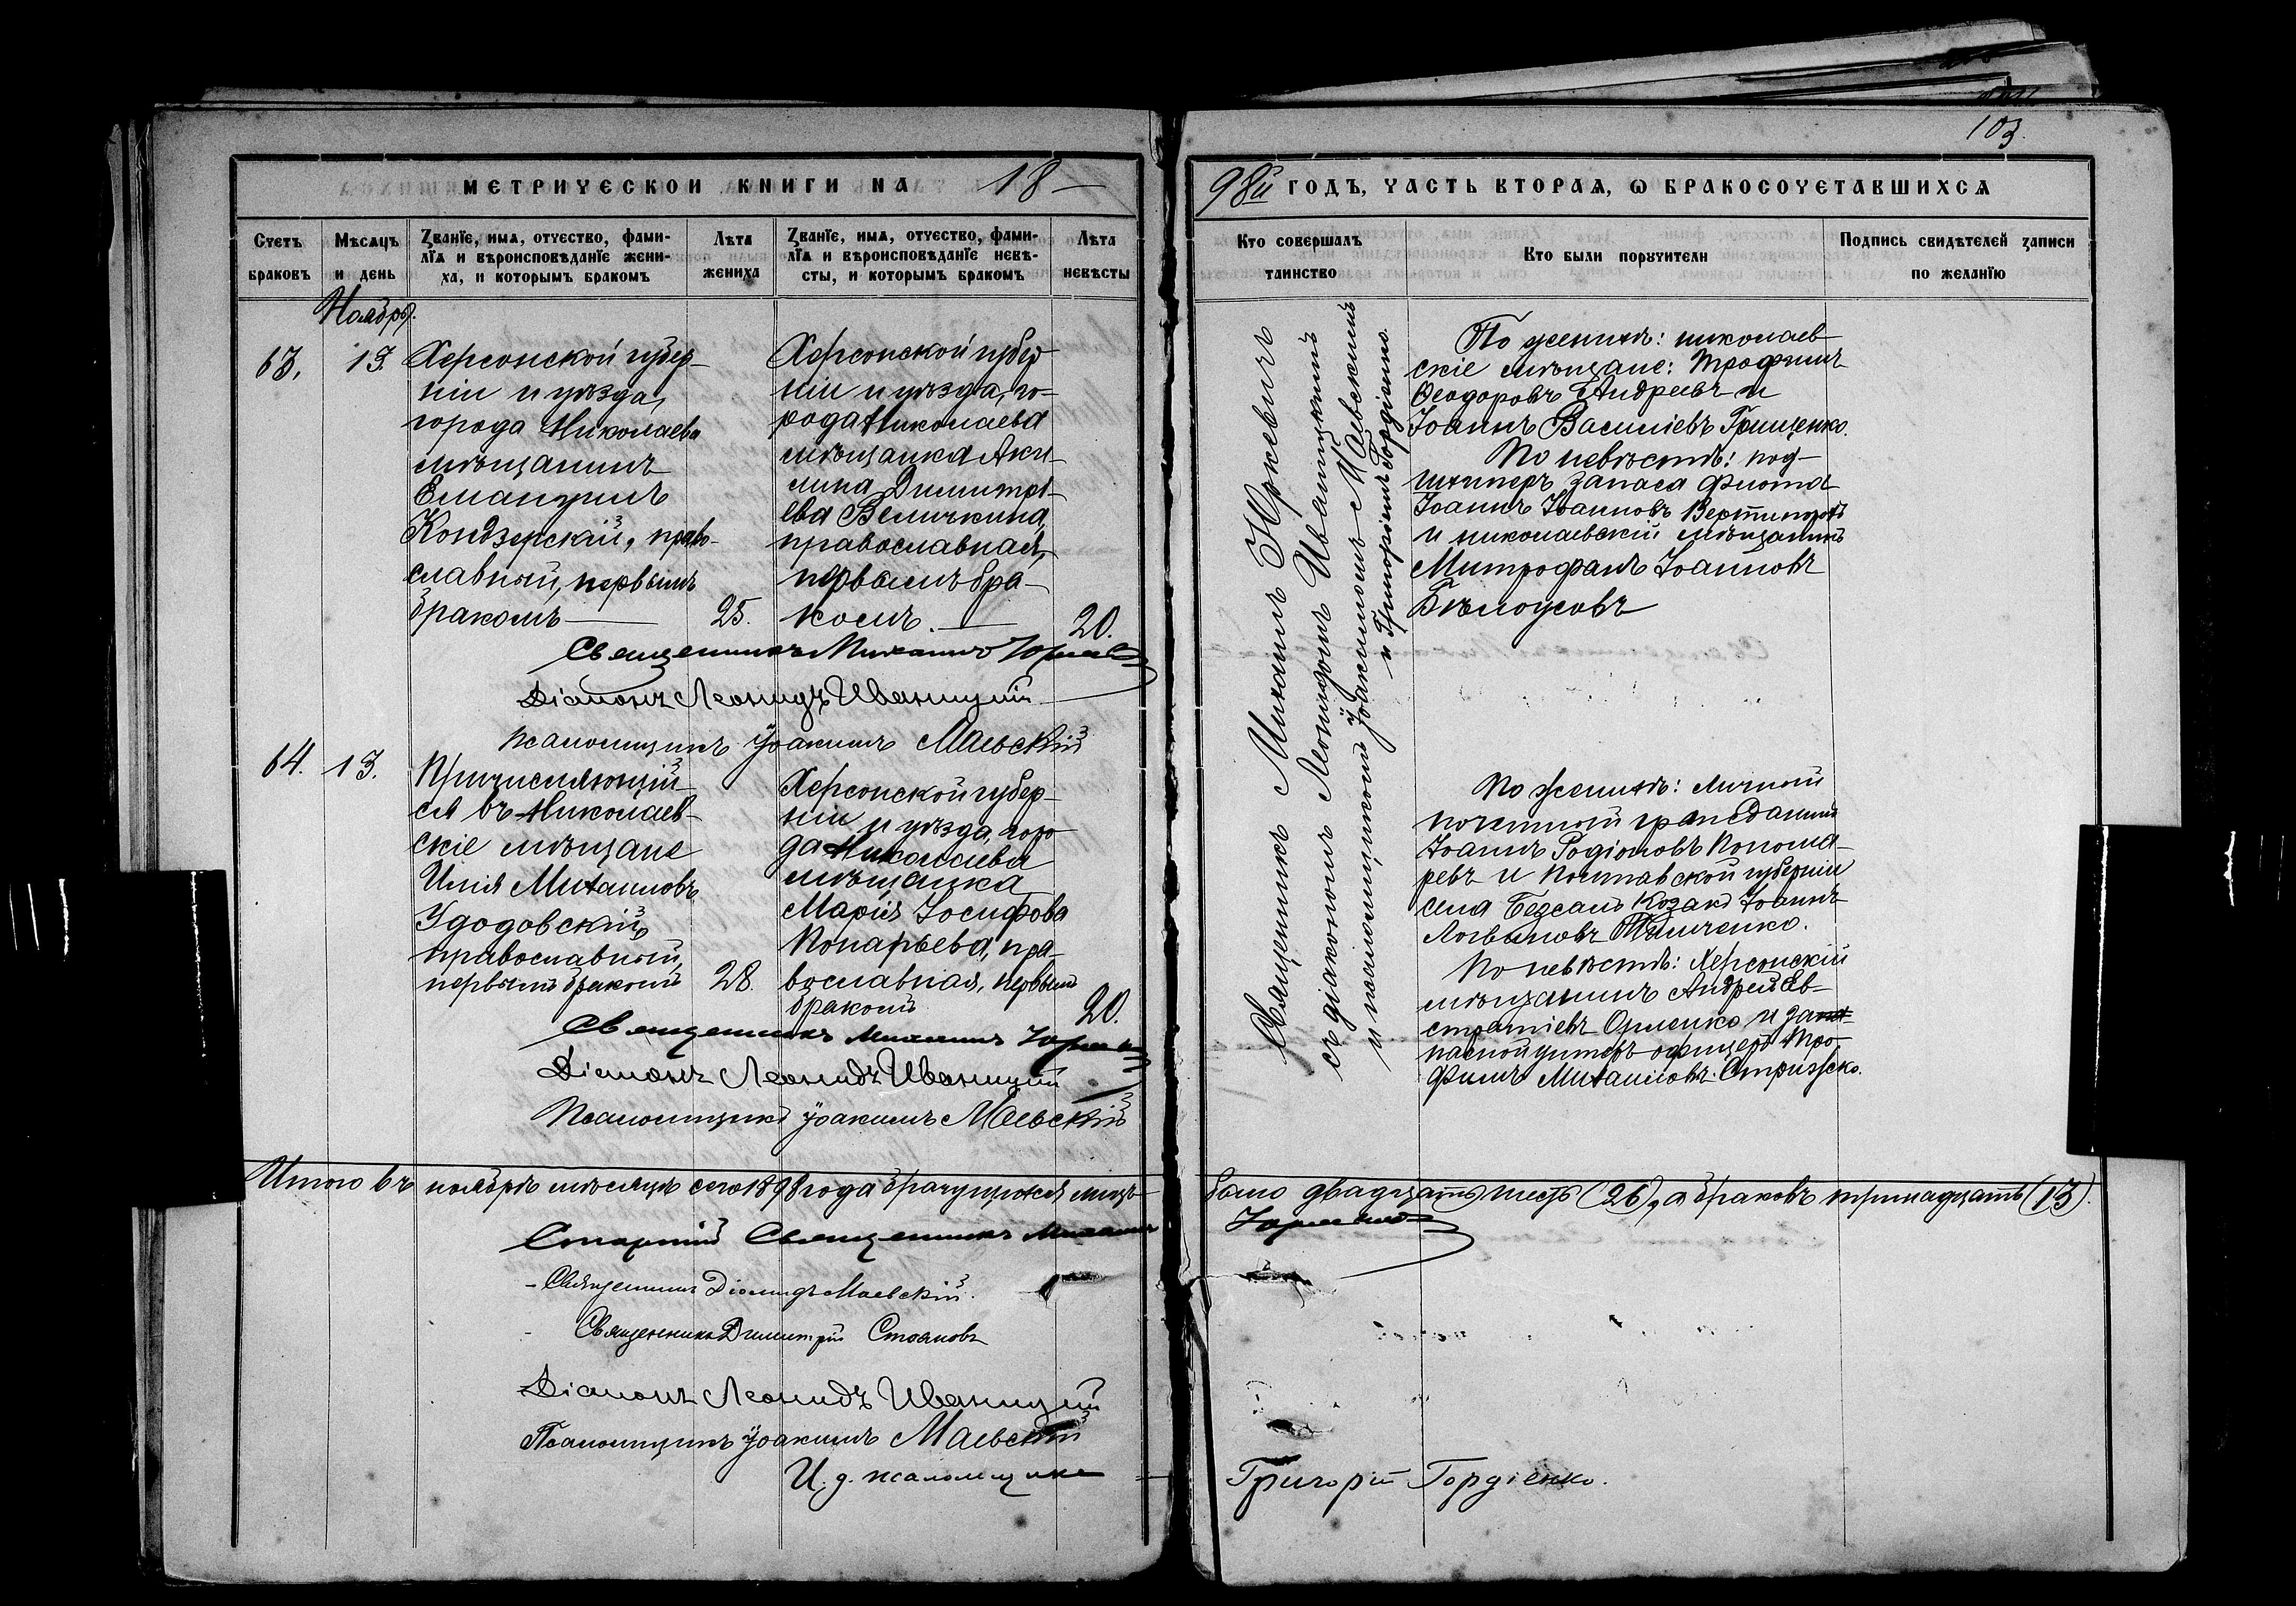 103.
МЕТРИЧЕСКОЙ КНИГИ НА 18—
98й ГОДЪ, ЧАСТЬ ВТОРАЯ, Ѡ БРАКОСОЧЕТАВШИХСЯ
Счетъ
браковъ
Мѣсяцъ
и день
Званіе, имя, отчество, фами-
лія и вѣроисповѣданіе жени-
ха, и которымъ бракомъ
Лѣта
жениха
Званіе, имя, отчество, фами-
лія и вѣроисповѣданіе невѣ-
сты, и которымъ бракомъ
Лѣта
невѣсты
Кто совершалъ
таинство
Кто были поручители
Подпись свидѣтелей записи
по желанію
Ноябрь.
63.
13.
Херсонской губер-
ніи и уѣзда,
города Николаева
мѣщанинъ
Емануилъ
Кондзерскій, право-
славный, первымъ
бракомъ
25.
Херсонской губер-
ніи и уѣзда, го-
рода Николаева
мѣщанка Аки-
лина Димитрі-
ева Величкина,
православная,
первымъ бра-
комъ.
20.
Священникъ Михаилъ Юркевичъ
съ діакономъ Леонидомъ Иваницкимъ
и псаломщикомъ Іоакимомъ Маевскимъ
и Григоріемъ Гордіенко.
По женихѣ: николаев-
скіе мѣщане: Трофимъ
Ѳеодоровъ Андреевъ и
Іоаннъ Василіевъ Грищенко.
По невѣстѣ: под-
шкиперъ запаса флота
Іоаннъ Іоанновъ
и николаевскій мѣщанинъ
Митрофанъ Іоанновъ
Бѣлоусовъ
Священникъ Михаилъ Юркевичъ
Діаконъ Леонидъ Иваницкій
Псаломщикъ Іоакимъ Маевскій
64.
13.
Причисляющій-
ся въ Николаев-
скіе мѣщане
Илія Михаиловъ
Удодовскій,
православный,
первымъ бракомъ
28.
Херсонской губер-
ніи и уѣзда, горо-
да Николаева
мѣщанка
Марія Іосифова
Понарьева, пра-
вославная, первымъ
бракомъ
20.
По женихѣ: личный
почетный гражданинъ
Іоаннъ Родіоновъ Понома-
ревъ и Полтавской губерніи
села Безсалъ козакъ Іоаннъ
Логвиновъ
По невѣстѣ: Херсонскій
мѣщанинъ Андрей Ев-
стратіевъ и за-
пасной унтеръ-офицеръ Тро-
фимъ Михаиловъ Стрижко.
Священникъ Михаилъ Юркевичъ
Діаконъ Леонидъ Иваницкій
Псаломщикъ Іоакимъ Маевскій
Итого въ ноябрѣ мѣсяцѣ сего 1898 года брачущихся лицъ было двадцать шесть (26), а браковъ тринадцать (13).
Старшій Священникъ Михаилъ Юркевичъ
Священникъ Діомидъ Маевскій.
Священникъ Димитрій Стояновъ
Діаконъ Леонидъ Иваницкій
Псаломщикъ Іоакимъ Маевскій
И. д. псаломщика Григорій Гордіенко.